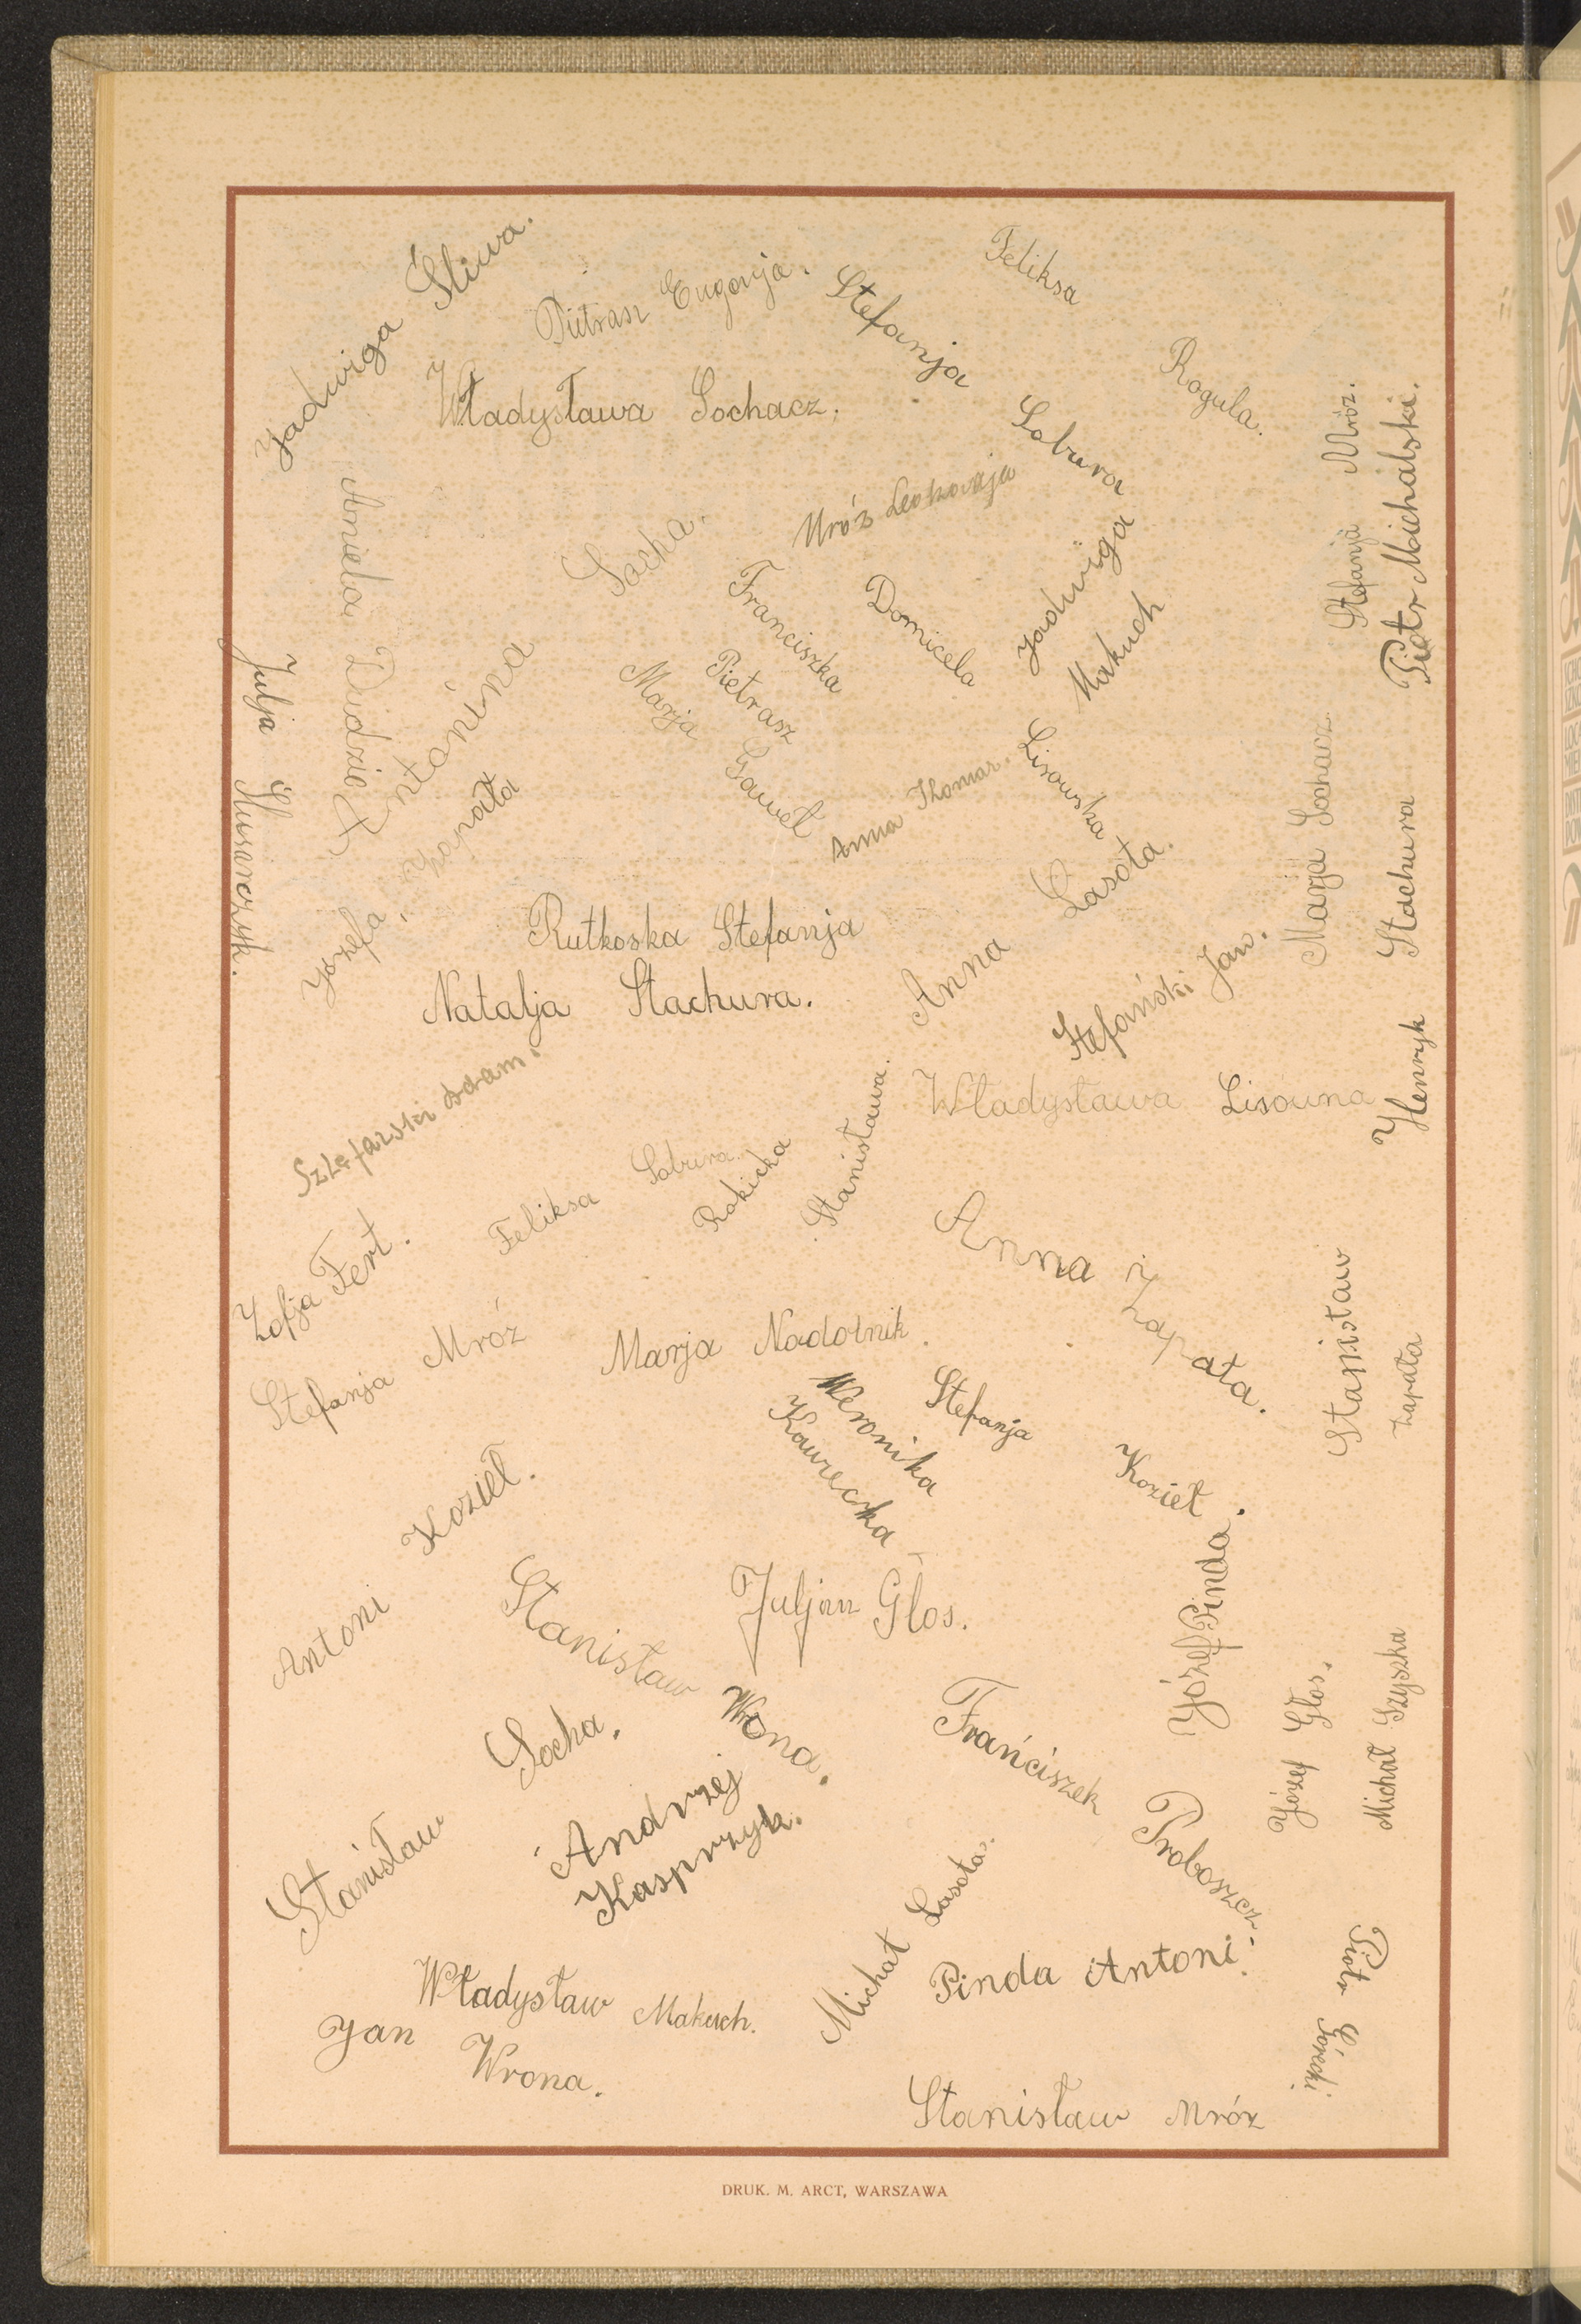 Jadwiga Śliwa.
Pietrasz Eugenja.
Stefanja Sabura
Feliksa Rogula.
Władysława Sochacz.
Stefanja Mróz.
Piotr Michalski.
Aniela Dudzic
Antonina Socha.
Mróz Leokadja
Franciszka Pietrasz
Domicela Lisowska
Jadwiga Makuch
Marja Gaweł
Julja Ślusarczyk.
Józefa Zapała
Anna
Anna Lasota.
Marja Sochacz.
Henryk Stachura
Rutkoska Stefanja
Natalja Stachura.
Stefański Jan.
Szlefarski Adam.
Władysława Lisouna
Feliksa
Stanisława Rokicka
Zofja Fert.
Anna Zapała.
Stefanja Mróz
Marja Nadolnik.
Stanisław Zapała
Weronika
Kawecka
Stefanja Kozieł.
Antoni Kozieł.
Juljan Głos.
Józef Pinda.
Stanisław Wrona.
Stanisław Socha.
Franciszek Proboszcz.
Józef Głos.
Michał Szyszka
Andrzej
Kasprzyk.
Michał Lasota.
Pinda Antoni.
Piotr Górecki
Władysław Makuch.
Jan Wrona.
Stanisław Mróz
DRUK. M. ARCT, WARSZAWA